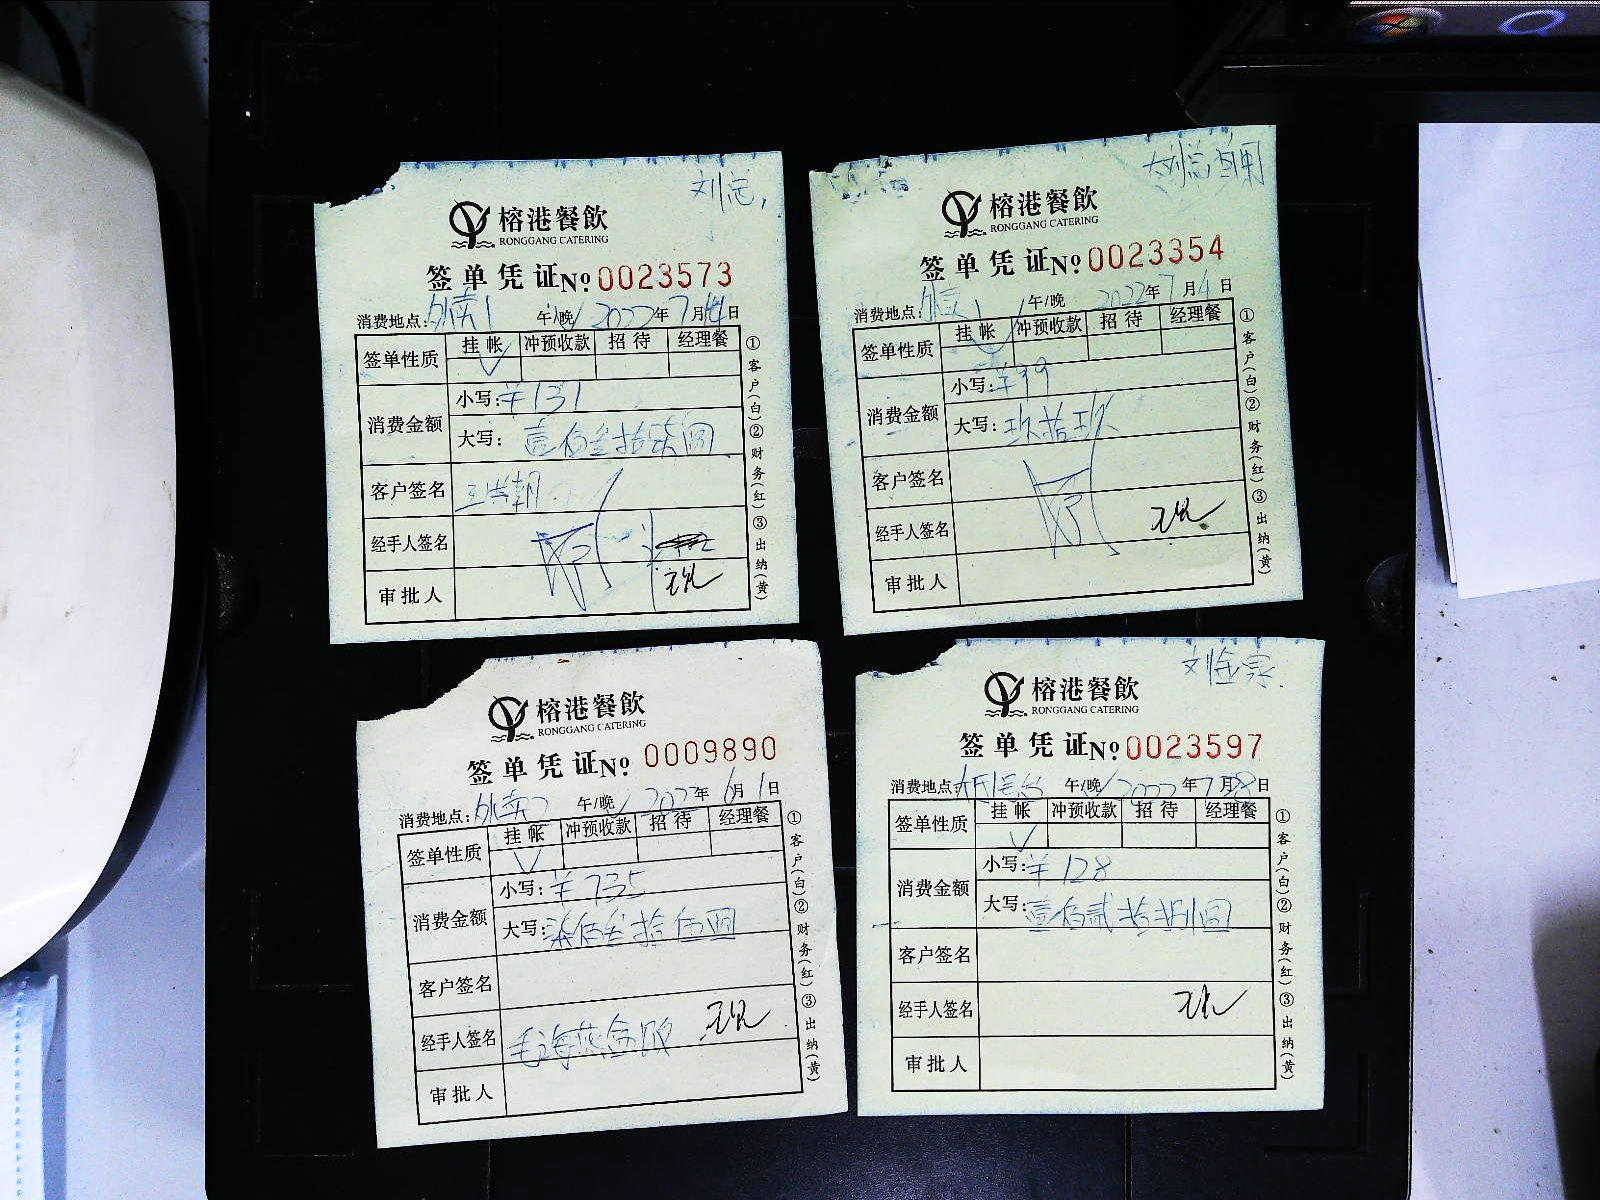 刘总
榕港餐飲
RONGGANG CATERING
签单凭证 No 0023573
消费地点：外卖1 午/晚 2022年7月14日
签单性质 挂帐 冲预收款 招待 经理餐
消费金额
小写：¥131
大写：壹佰叁拾 圆
客户签名
经手人签名
审批人
①客户(白)②财务(红)③出纳(黄)
大刘总
榕港餐飲
RONGGANG CATERING
签单凭证 No 0023354
消费地点：外卖1 午/晚 2022年7月4日
签单性质 挂帐 冲预收款 招待 经理餐
消费金额
小写：¥99
大写：玖拾玖
客户签名
经手人签名
审批人
①客户(白)②财务(红)③出纳(黄)
榕港餐飲
RONGGANG CATERING
签单凭证 No 0009890
消费地点：外卖2 午/晚 2022年6月1日
签单性质 挂帐 冲预收款 招待 经理餐
消费金额
小写：¥735
大写：柒佰叁拾伍圆
客户签名
经手人签名 毛海燕
审批人
①客户(白)②财务(红)③出纳(黄)
刘金宗
榕港餐飲
RONGGANG CATERING
签单凭证 No 0023597
消费地点： 午/晚 2022年7月8日
签单性质 挂帐 冲预收款 招待 经理餐
消费金额
小写：¥128
大写：壹佰贰拾捌圆
客户签名
经手人签名
审批人
①客户(白)②财务(红)③出纳(黄)